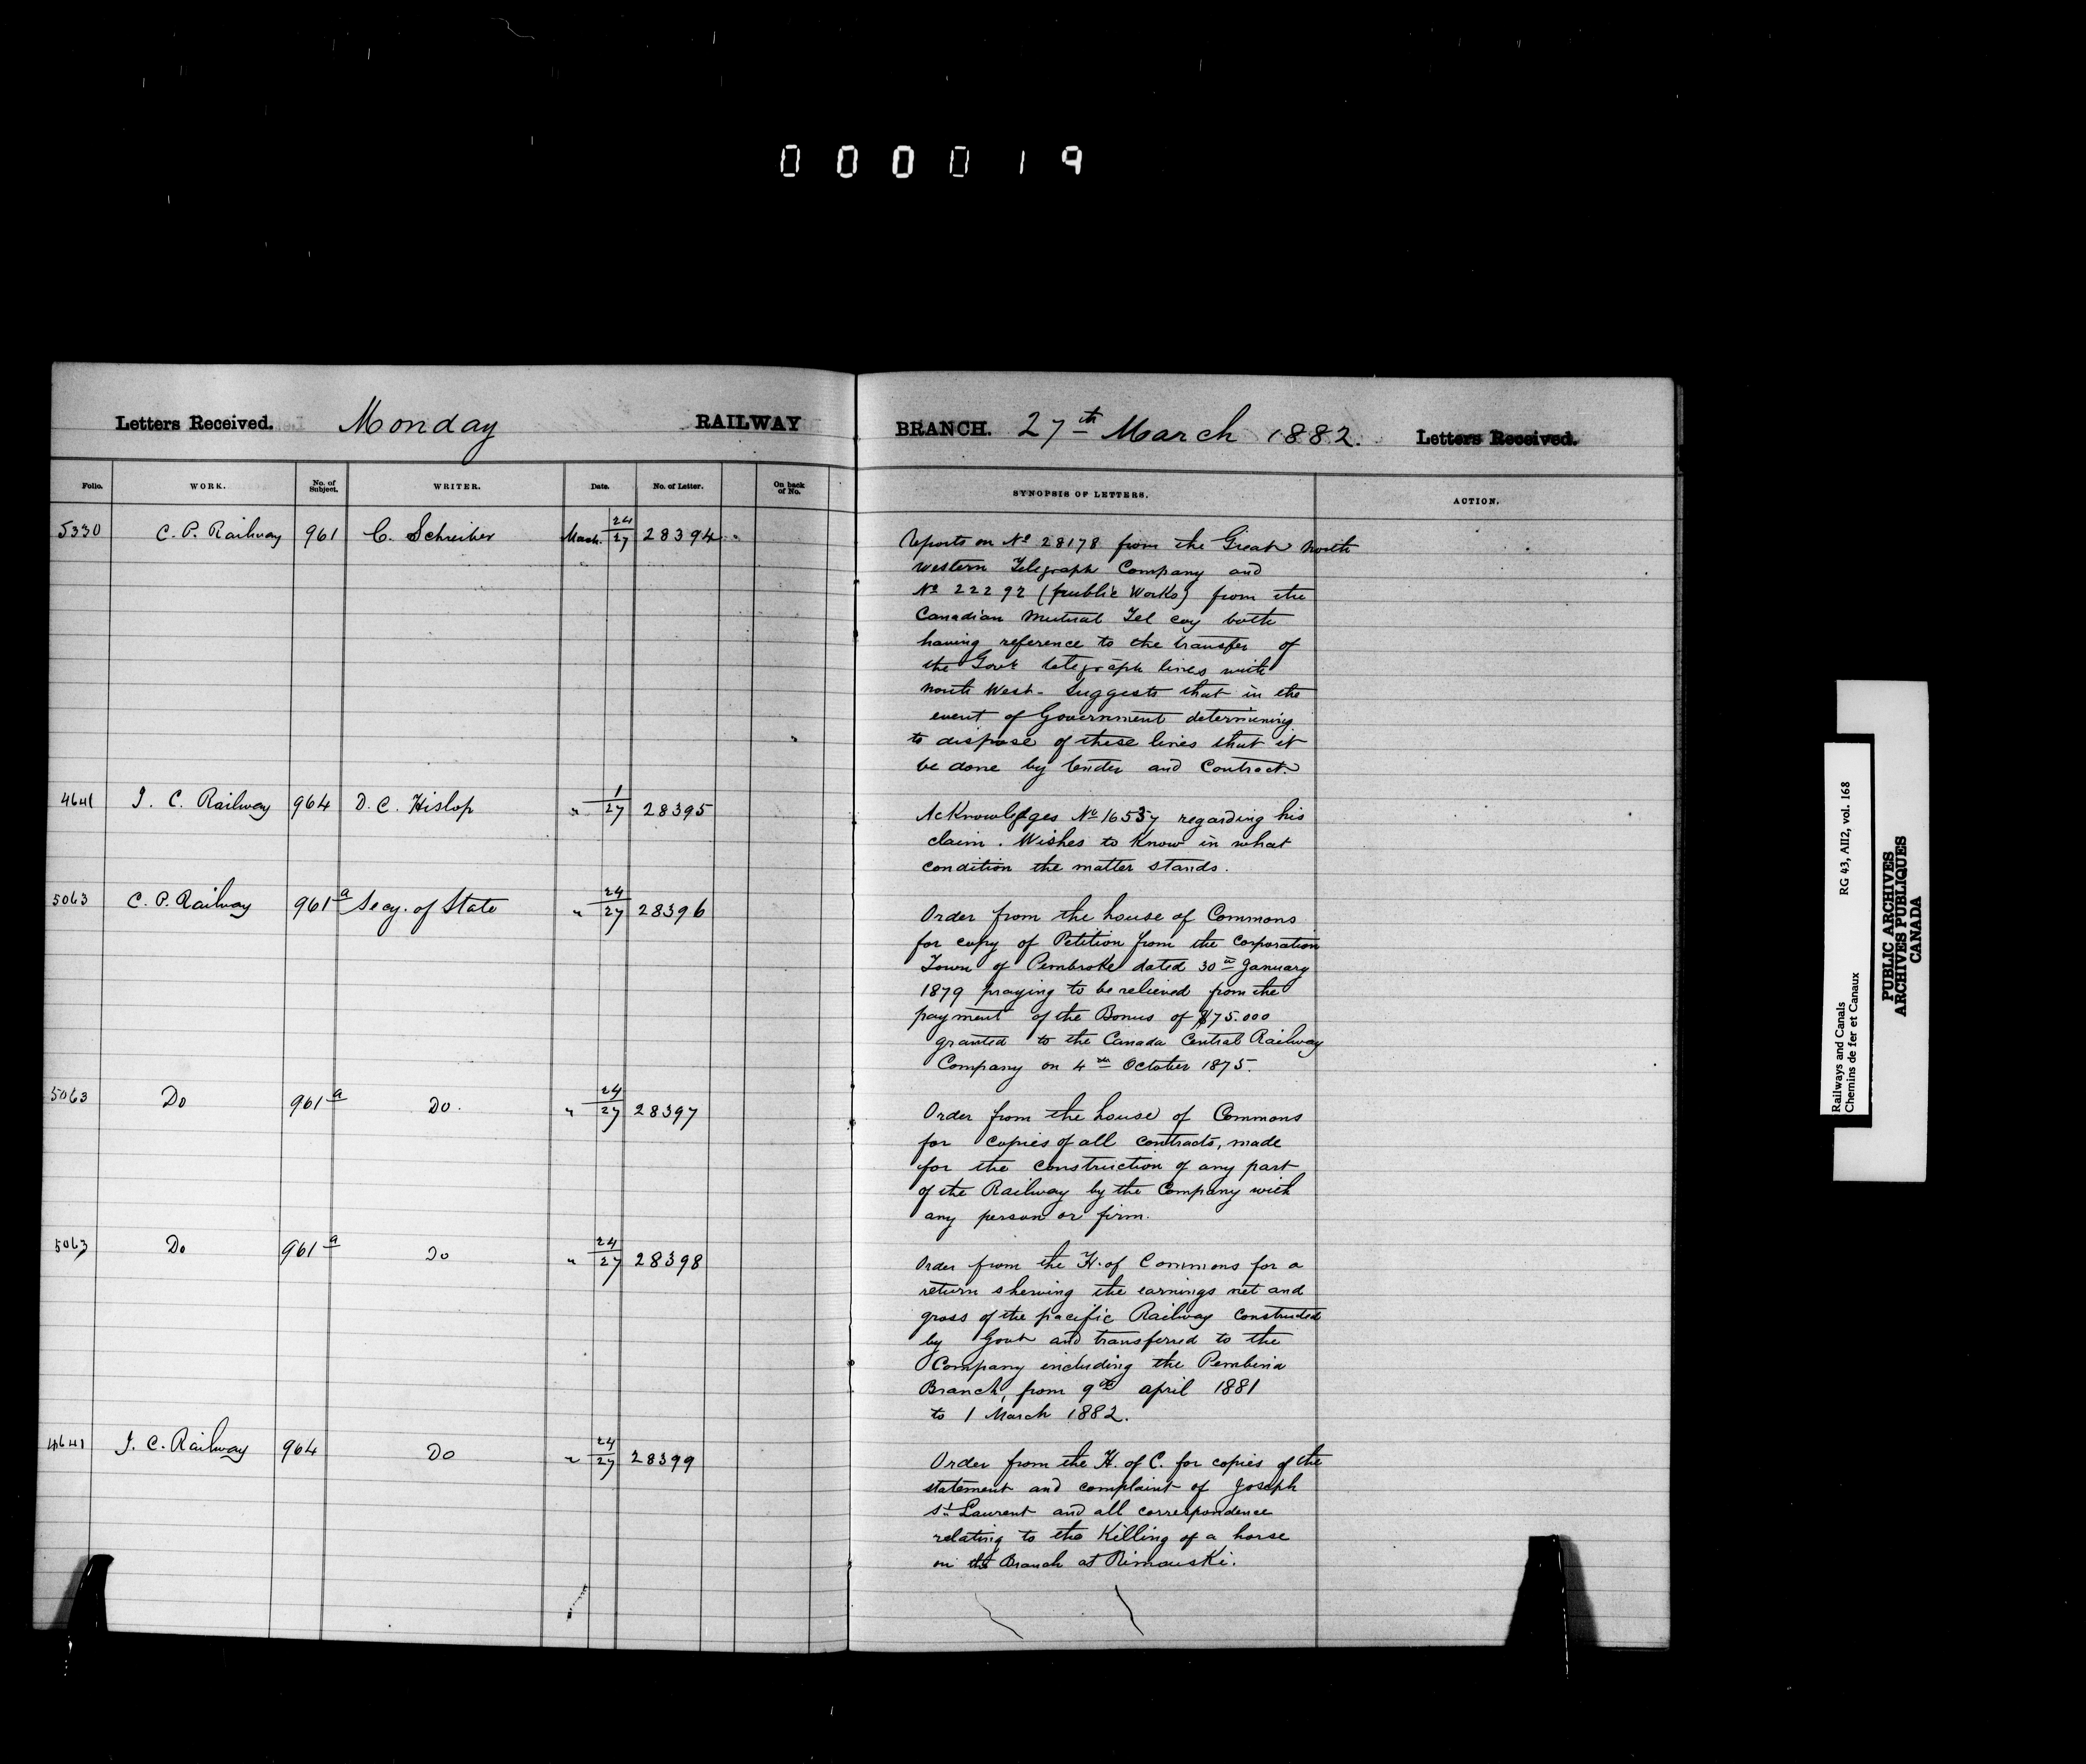 000019
Letters Received. Monday RAILWAY BRANCH. 27th March 1882. Letters Received.
Folio. WORK. No. of Subject. WRITER. Date. No. of Letter. On back of No. SYNOPSIS OF LETTERS. ACTION.
5330 C. P. Railway 961 C. Schreiber March 24/27 28394
Reports on No 28178 from the Great North
Western Telegraph Company and
No 22292 (public Works) from the
Canadian Mutual Tel coy both
having reference to the transfer of
the Govt telegraph lines
North West - Suggests that in the
event of Government determining
to dispose of these lines that it
be done by tender and Contract.
4641 I. C. Railway 964 D. C. Hislop " 1/27 28395
Acknowledges No 16537 regarding his
claim. Wishes to Know in what
condition the matter stands.
5063 C. P. Railway 961a Secy. of State " 24/27 28396
Order from the house of Commons
for copy of Petition from the Corporation
Town of Pembroke dated 30th January
1879 praying to be relieved from the
payment of the Bonus of $75.000
granted to the Canada Central Railway
Company on 4th October 1875.
5063 Do 961a Do. " 24/27 28397
Order from the house of Commons
for copies of all contracts, made
for the construction of any part
of the Railway by the Company with
any person or firm.
5063 Do 961a Do " 24/27 28398
Order from the H. of Commons for a
return shewing the earnings net and
gross of the pacific Railway constructed
by Govt and transferred to the
Company including the Pembina
Branch, from 9th april 1881
to 1 March 1882.
4641 I. C. Railway 964 Do " 24/27 28399
Order from the H. of C. for copies of the
statement and complaint of Joseph
St Laurent and all correspondence
relating to the Killing of a horse
on the Branch at Rimouski.
Railways and Canals RG 43, AII2, vol. 168
Chemins de fer et Canaux
PUBLIC ARCHIVES
ARCHIVES PUBLIQUES
CANADA